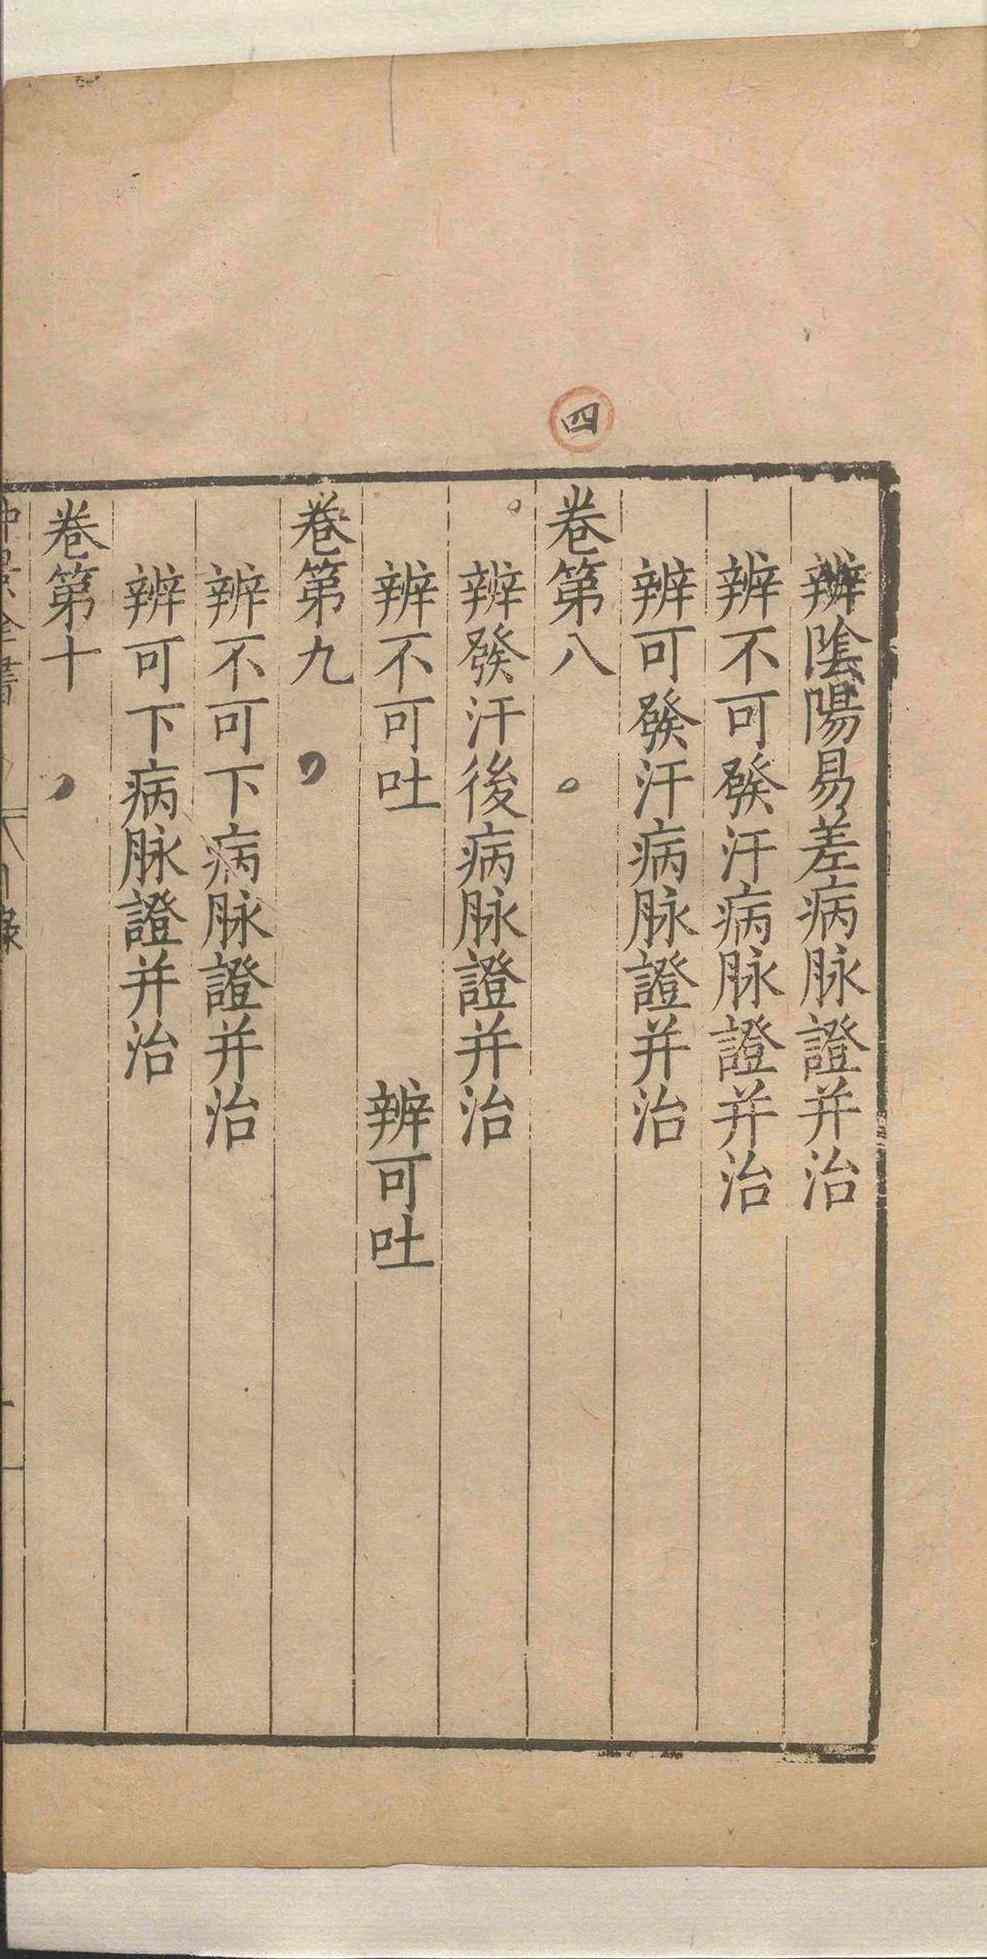 四
辨陰陽易差病脉證并治
辨不可發汗病脉證并治
辨可發汗病脉證并治
卷第八
辨發汗後病脉證并治
辨不可吐　辨可吐
卷第九
辨不可下病脉證并治
辨可下病脉證并治
卷第十